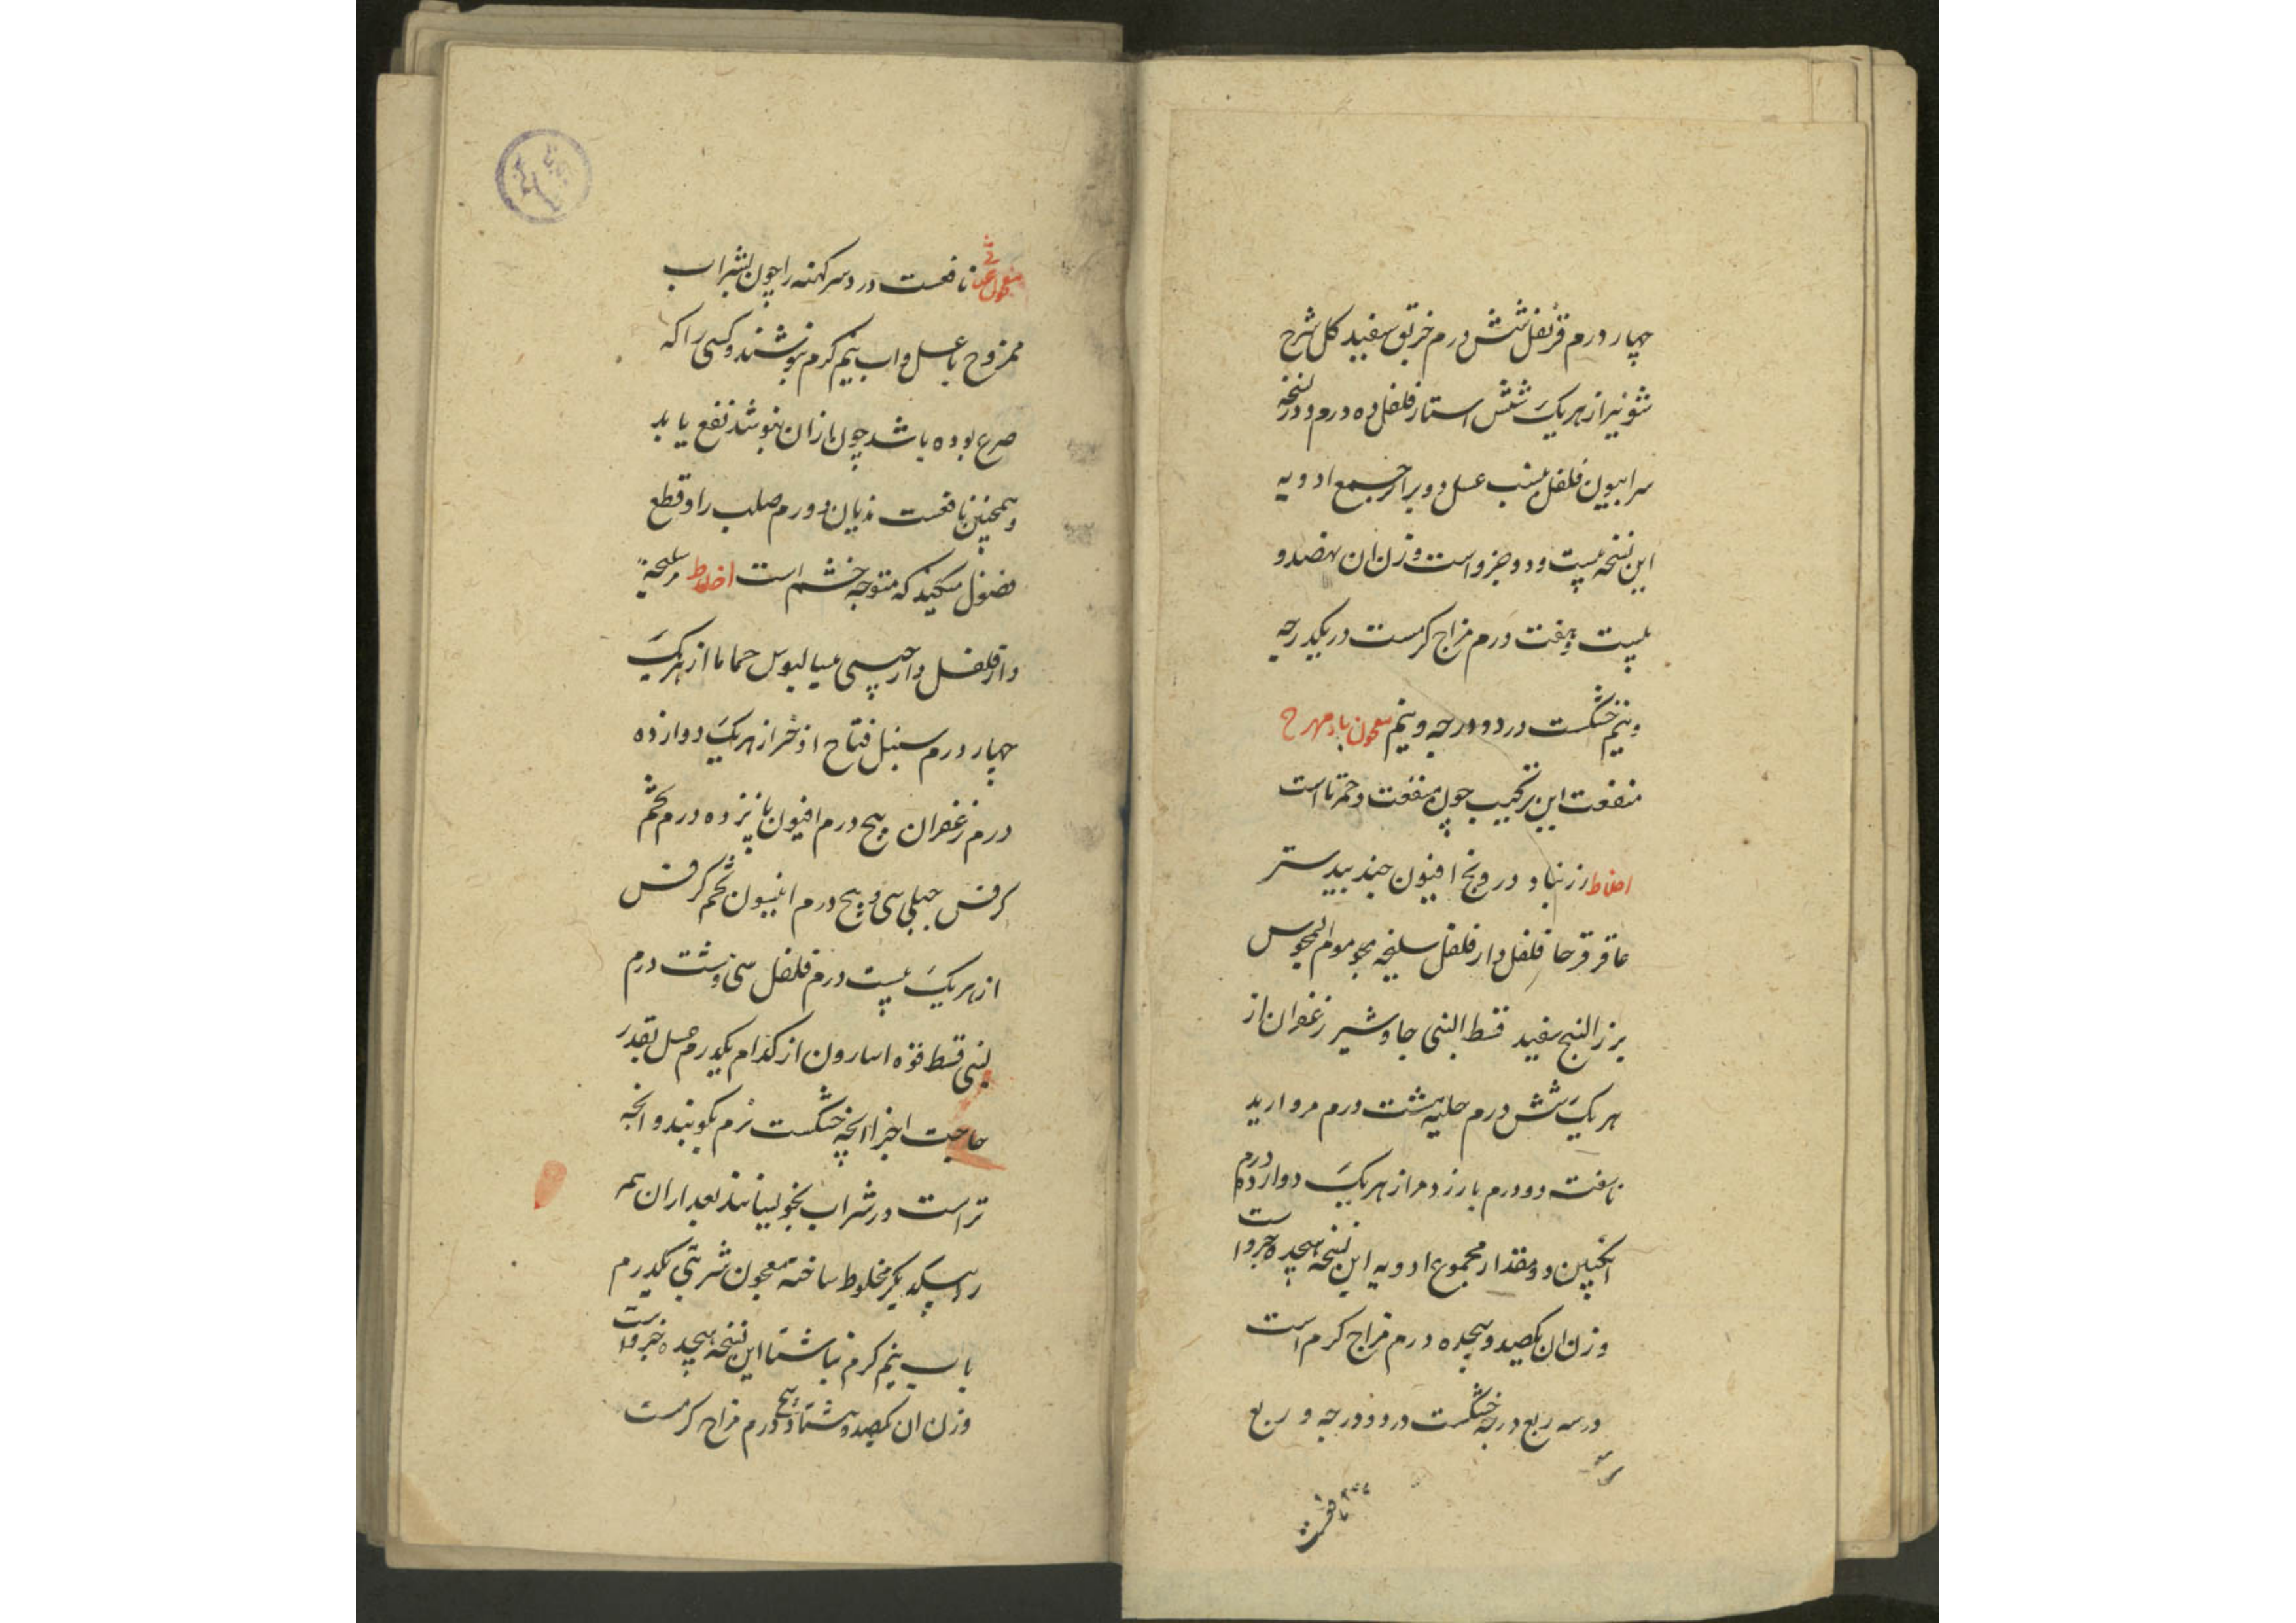 چهار درم قرنفل شش درم خربق سفید کل سرخ
شونیز از هریک شش استار فلفل ده درم و در نسخه
سرابیون فلفل عسل دو برابر جمیع ادویه
این نسخه بیست و دو جزو است وزن ان نهصد و
بیست و هفت درم مزاج کرمست در یکدرجه
و نیم خشکست در دو درجه و نیم معجون بادمهرج
منفعت این ترکیب چون منفعت است
اخلاط زرنباد درونج افیون جندبیدستر
عاقرقرحا فلفل دارفلفل سلیخه
بزرالبنج سفید قسط لبنی جاوشیر زعفران از
هریک شش درم حلیه هشت درم مروارید
ناسفته دو درم بارزد مر از هریک دوازده درم
انکبین دو مقدار مجموع ادویه این نسخه هیجده جزو است
وزن ان یکصد و هیجده درم مزاج کرم است
در سه ربع درجه خشکست در دو درجه و ربع
نافعست
معجون نافعست درد سر کهنه را چون بشراب
ممزوج با عسل و اب نیم کرم بنوشند و کسی را که
صرع بوده باشد چون ازان بنوشد نفع یابد
و همچنین نافعست هذیان و ورم صلب را و قطع
فضول میکند که متوجه چشم است اخلاط مر سلیخه
دارفلفل دارچینی سیالیوس حماما از هریک
چهار درم سنبل فقاح اذخر از هریک دوازده
درم زعفران پنج درم افیون پانزده درم تخم
کرفس جبلی سی و پنج درم انیسون تخم کرفس
از هریک بیست درم فلفل سی و هشت درم
لبنی قسط فوه اسارون از کدام یکدرم عسل بقدر
حاجت اجزا انچه خشکست نرم بکوبند و انچه
تر است در شراب بخویسانند بعد ازان همه
را بیکدیکر مخلوط ساخته معجون شربتی یکدرم
باب نیم کرم ناشتا این نسخه هیجده جزو است
وزن ان یکصد و هشتاد و پنج درم مزاج کرمست